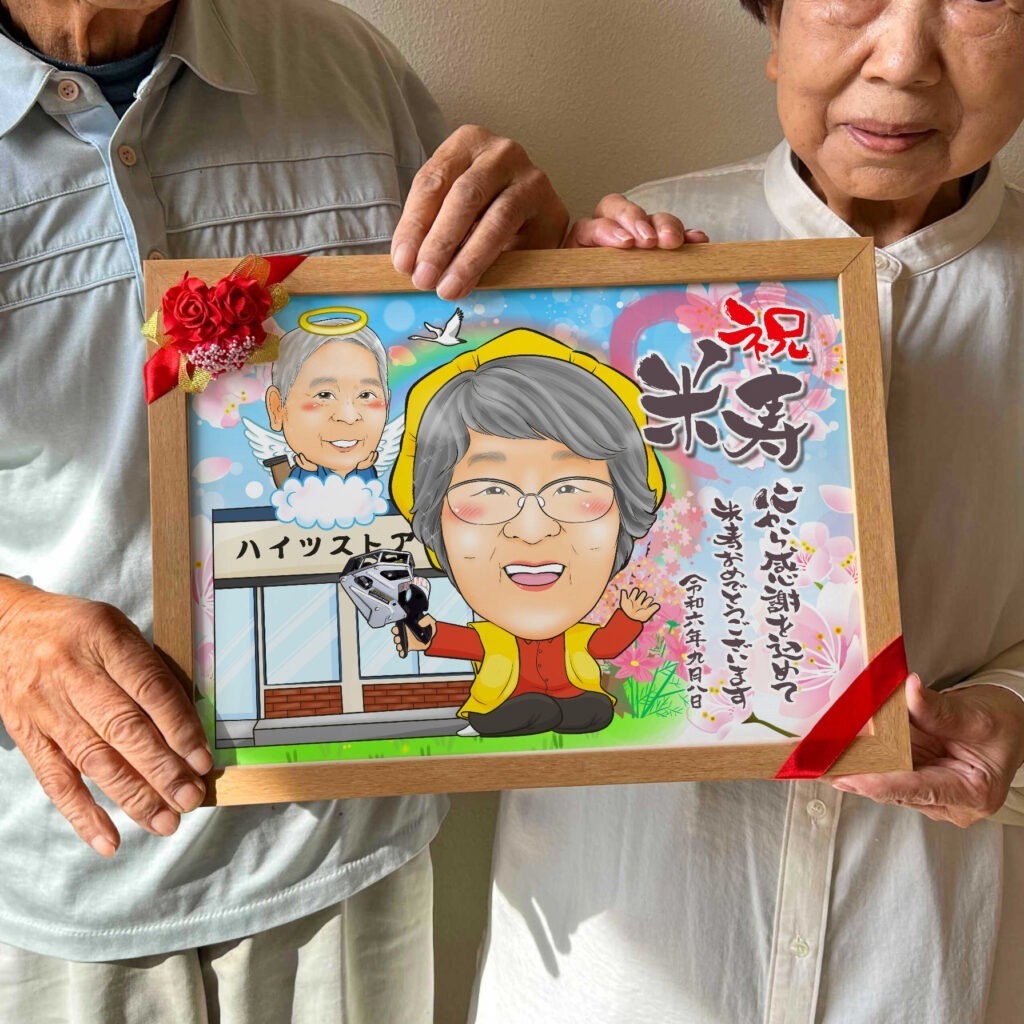 祝
米寿
心から感謝を込めて
米寿おめでとうございます
令和六年九月八日
ハイツストア